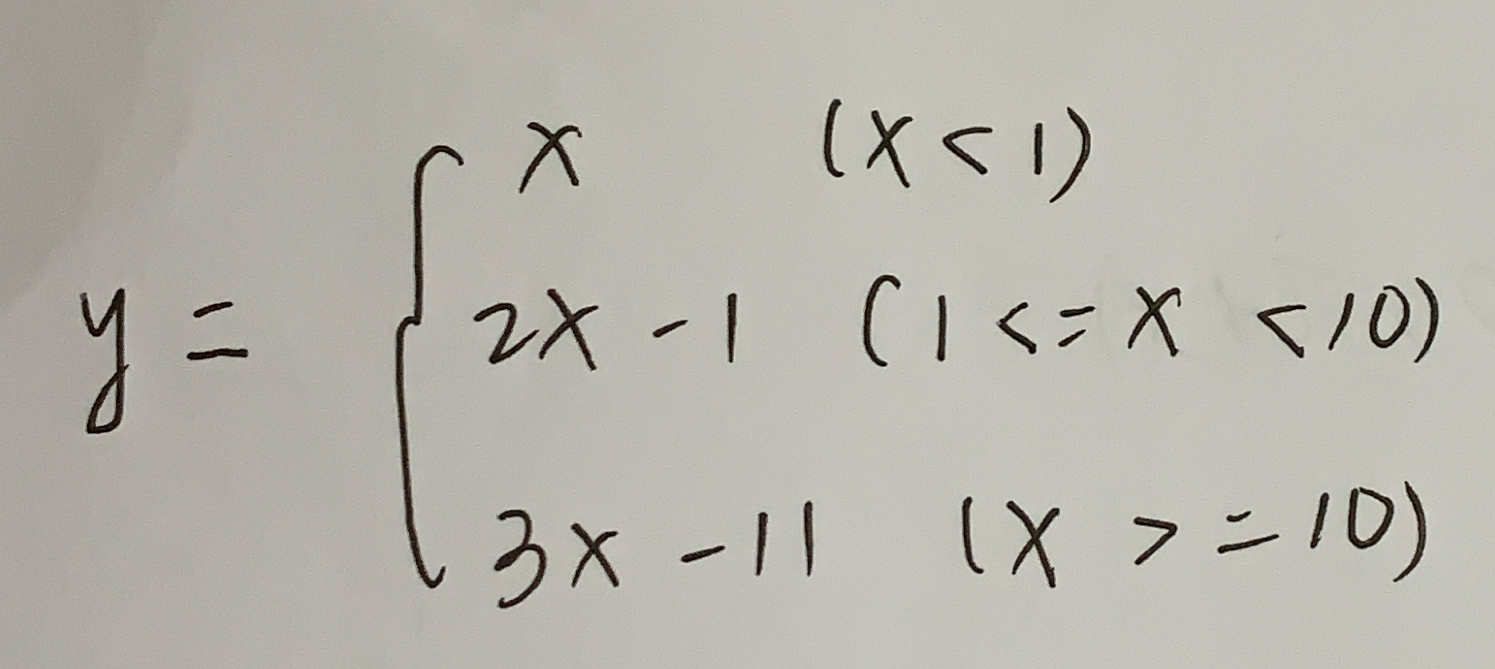 y = { x (x < 1)
2x - 1 (1 <= x < 10)
3x - 11 (x >= 10)